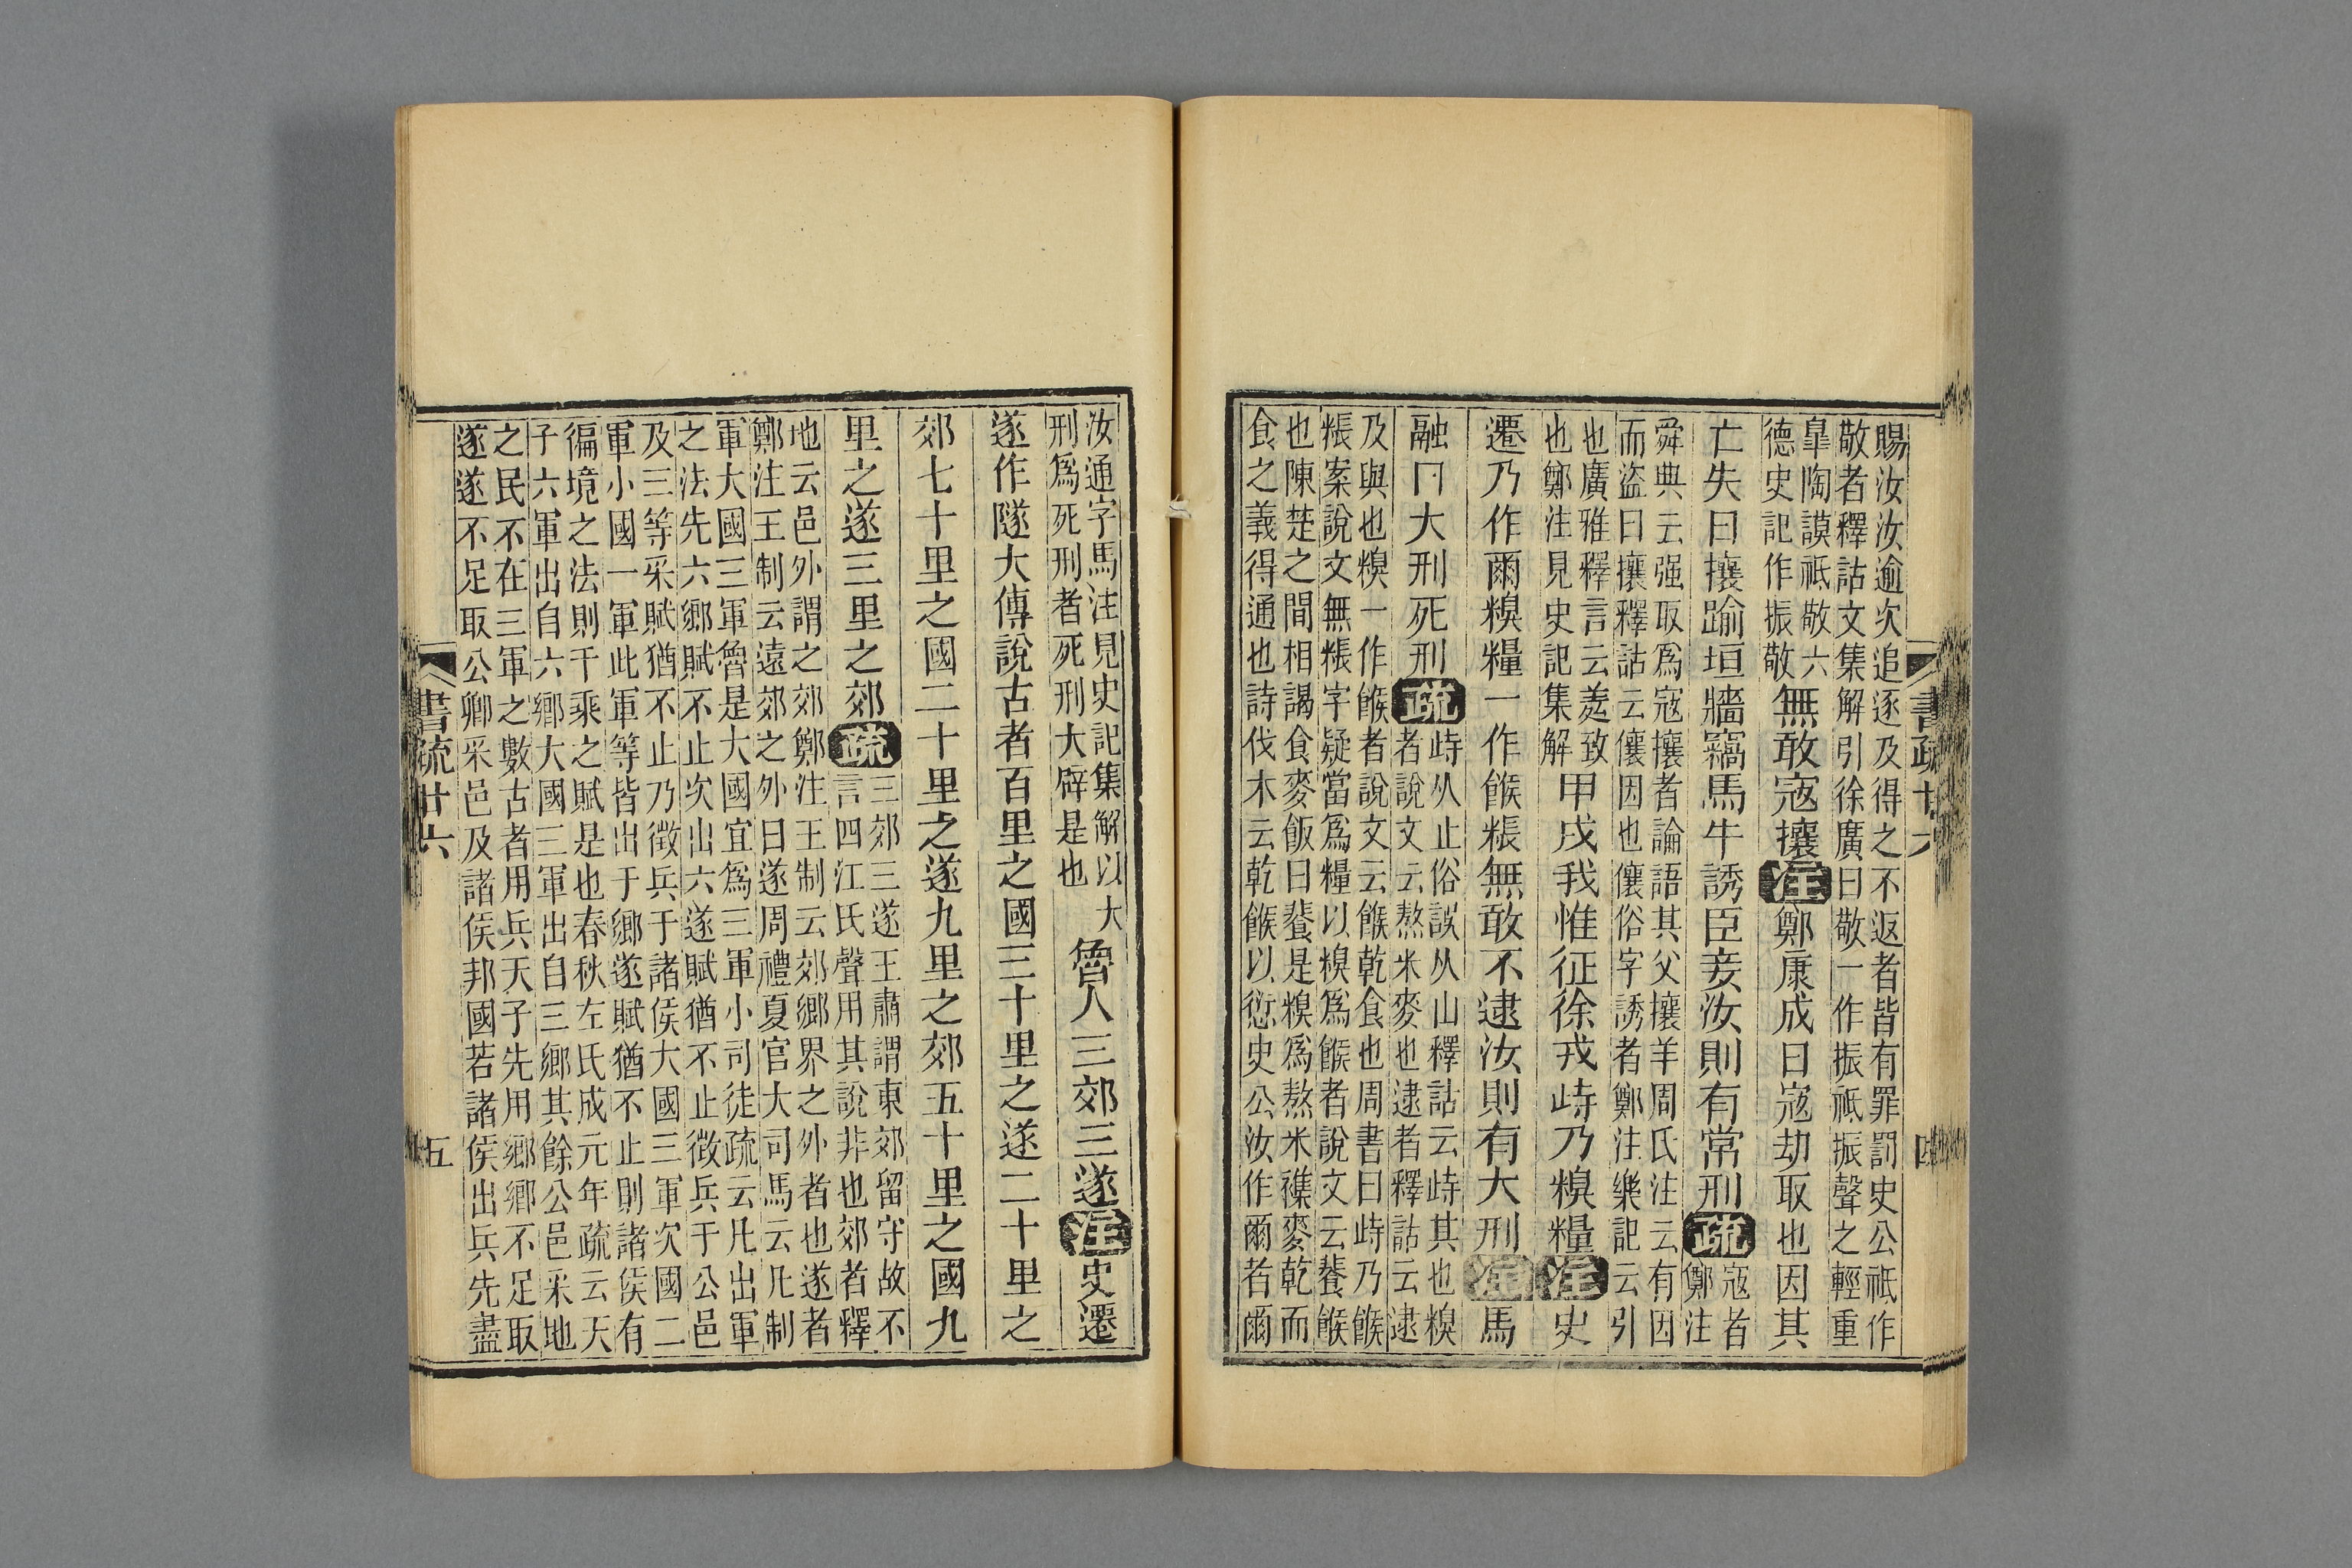 賜汝汝逾次追逐及得之不返者皆有罪罰史公祗作
敬者釋詁文集解引徐廣曰敬一作振祗振聲之輕重
皐陶謨祗敬六
德史記作振敬
無敢寇攘注鄭康成曰寇劫取也因其
亡失曰攘踰垣牆竊馬牛誘臣妾汝則有常刑疏
寇者
鄭注
舜典云强取爲寇攘者論語其父攘羊周氏注云有因
而盜曰攘釋詁云儴因也儴俗字誘者鄭注樂記云引
也廣雅釋言云羑致
也鄭注見史記集解
甲戌我惟征徐戎峙乃糗糧注史
遷乃作爾糗糧一作餱粻無敢不逮汝則有大刑注馬
融曰大刑死刑疏
峙从止俗誤从山釋詁云峙其也糗
者說文云熬米麥也逮者釋詁云逮
及與也糗一作餱者說文云餱乾食也周書曰峙乃餱
粻案說文無粻字疑當爲糧以糗爲餱者說文云餥餱
也陳楚之間相謁食麥飯曰餥是糗爲熬米襍麥乾而
食之義得通也詩伐木云乾餱以愆史公汝作爾者爾
書疏廿六
四
汝通字馬注見史記集解以大
刑爲死刑者死刑大辟是也
魯人三郊三遂注史遷
遂作隧大傳說古者百里之國三十里之遂二十里之
郊七十里之國二十里之遂九里之郊五十里之國九
里之遂三里之郊疏
三郊三遂王肅謂東郊留守故不
言四江氏聲用其說非也郊者釋
地云邑外謂之郊鄭注王制云郊鄉界之外者也遂者
鄭注王制云遠郊之外曰遂周禮夏官大司馬云凡制
軍大國三軍魯是大國宜爲三軍小司徒疏云凡出軍
之法先六鄉賦不止次出六遂賦猶不止徵兵于公邑
及三等采賦猶不止乃徵兵于諸侯大國三軍次國二
軍小國一軍此軍等皆出于鄉遂賦猶不止則諸侯有
徧境之法則千乘之賦是也春秋左氏成元年疏云天
子六軍出自六鄉大國三軍出自三鄉其餘公邑采地
之民不在三軍之數古者用兵天子先用鄉鄉不足取
遂遂不足取公卿采邑及諸侯邦國若諸侯出兵先盡
書疏廿六
五